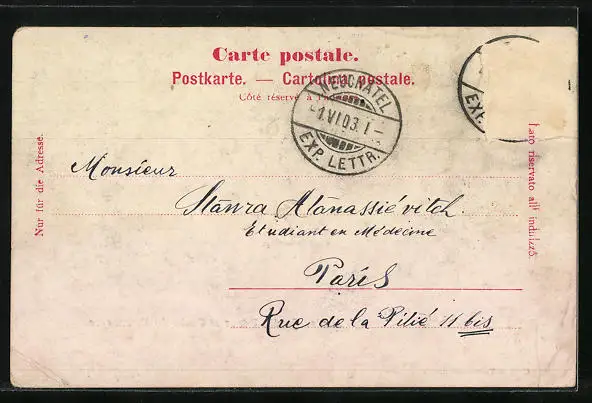 Carte postale.
Postkarte. — Cartolina postale.
Côté réservé à l'adresse
NEUCHATEL
-1.VI.03.I-
EXP. LETTR.
EXP.
Nur für die Adresse.
Lato riservato all' indirizzo.
Monsieur
Atanassiévitch.
Etudiant en Médecine
Paris
Rue de la Pitié 11 bis